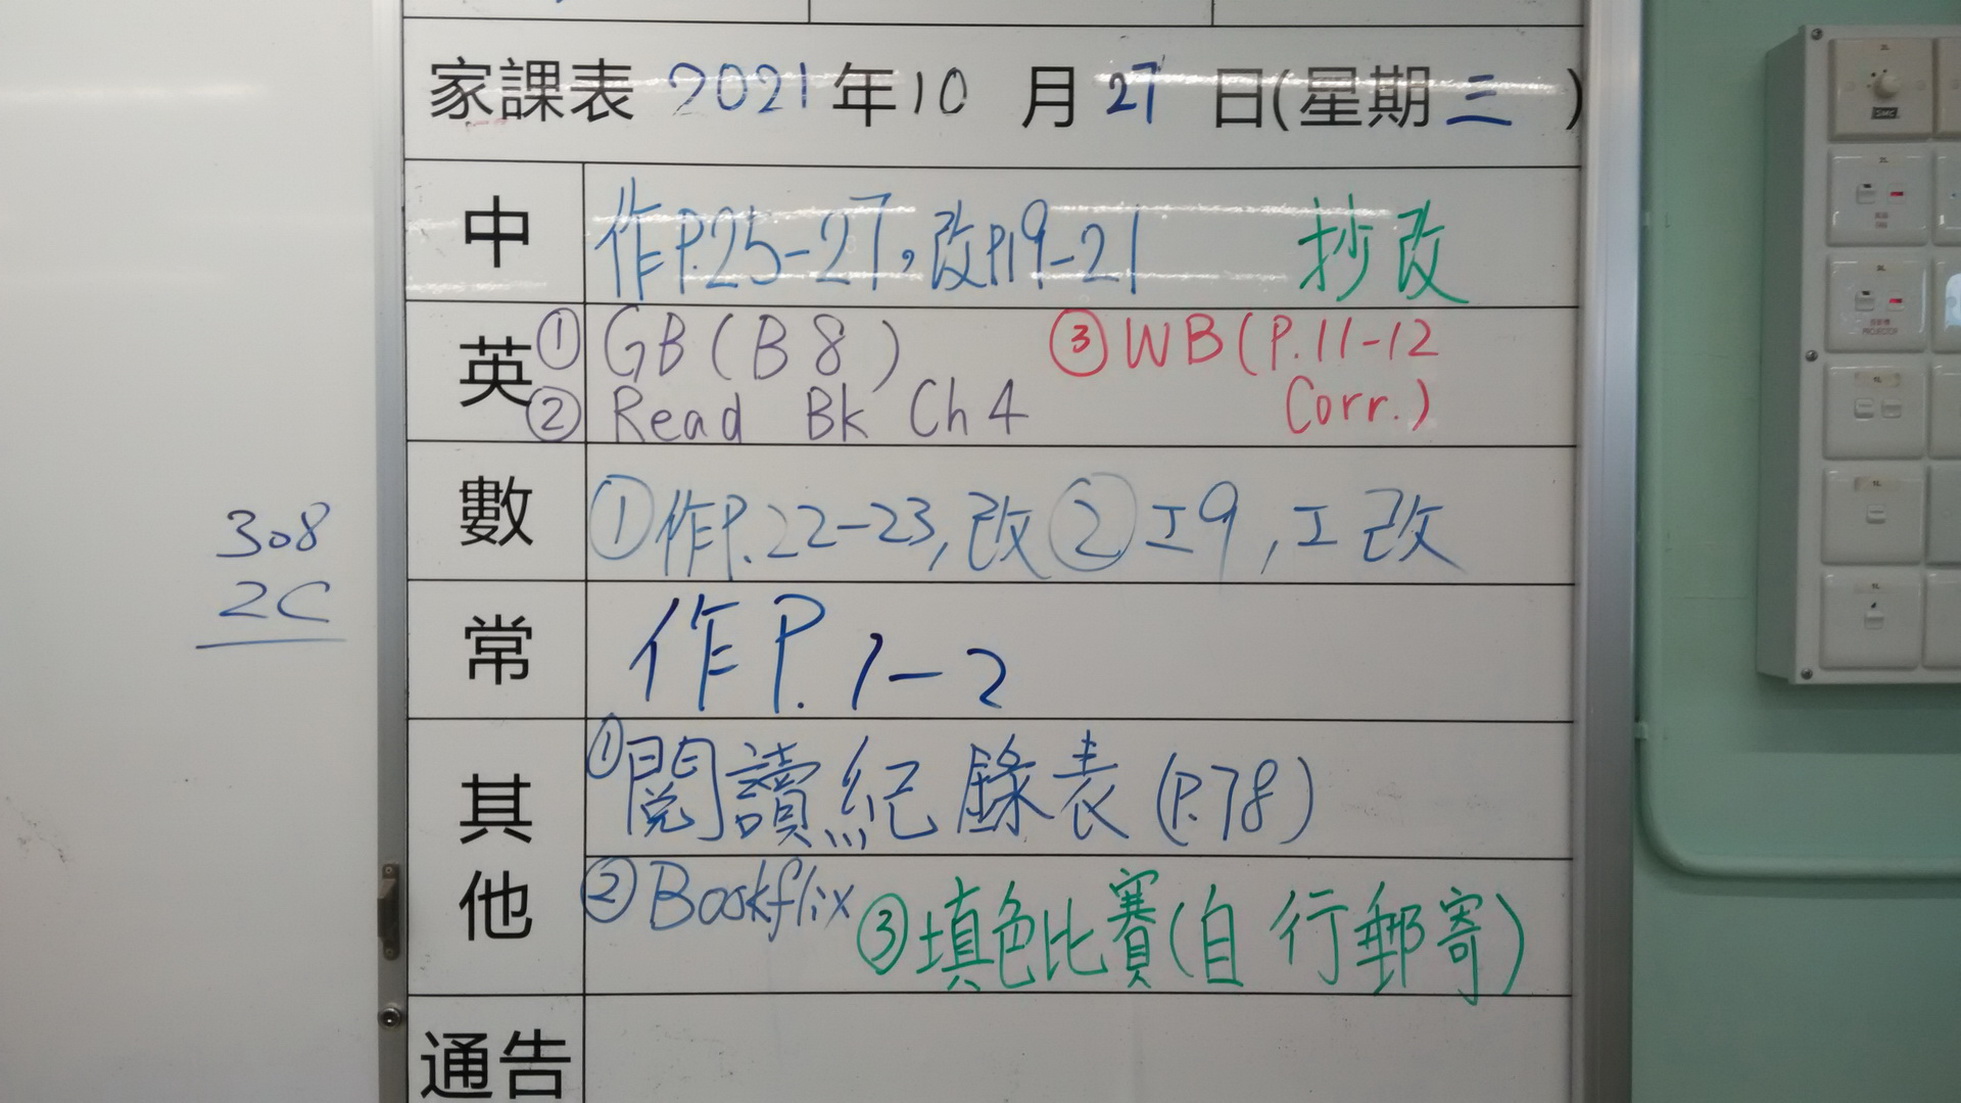 家課表 2021年10月27日(星期三)
中 作P.25-27,改P.19-21 抄改
英 ① GB(B8) ③ WB(P.11-12
② Read Bk Ch 4 Corr.)
數 ①作P.22-23,改②工9,工改
308
2C
常 作P.1-2
其他 ①閱讀紀錄表(P.78)
②Bookflix ③填色比賽(自行郵寄)
通告